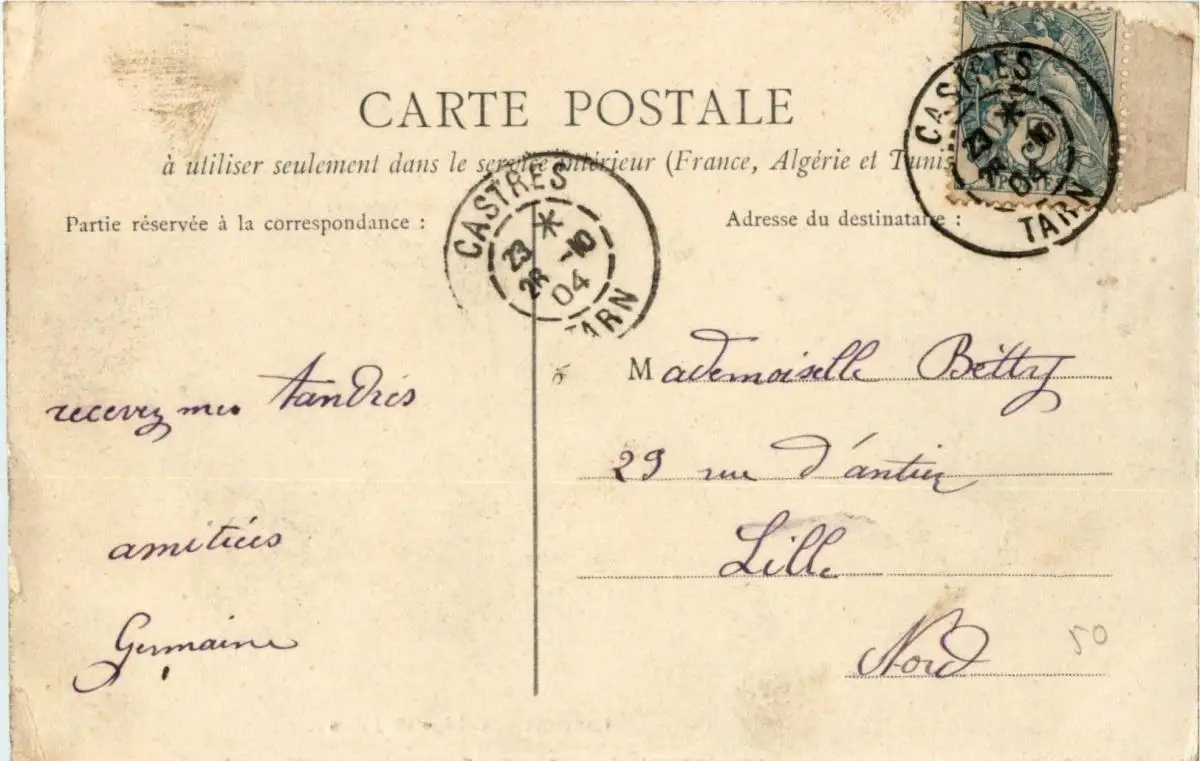 CARTE POSTALE
à utiliser seulement dans le service intérieur (France, Algérie et Tunis
Partie réservée à la correspondance :
Adresse du destinataire :
CASTRES
23
26 -10
04
TARN
CASTRES
23
26 -10
04
TARN
recevez mes tandrés
amitiées
Germaine
Mademoiselle Bétty
29 rue d'antin
Lille
Nord
50